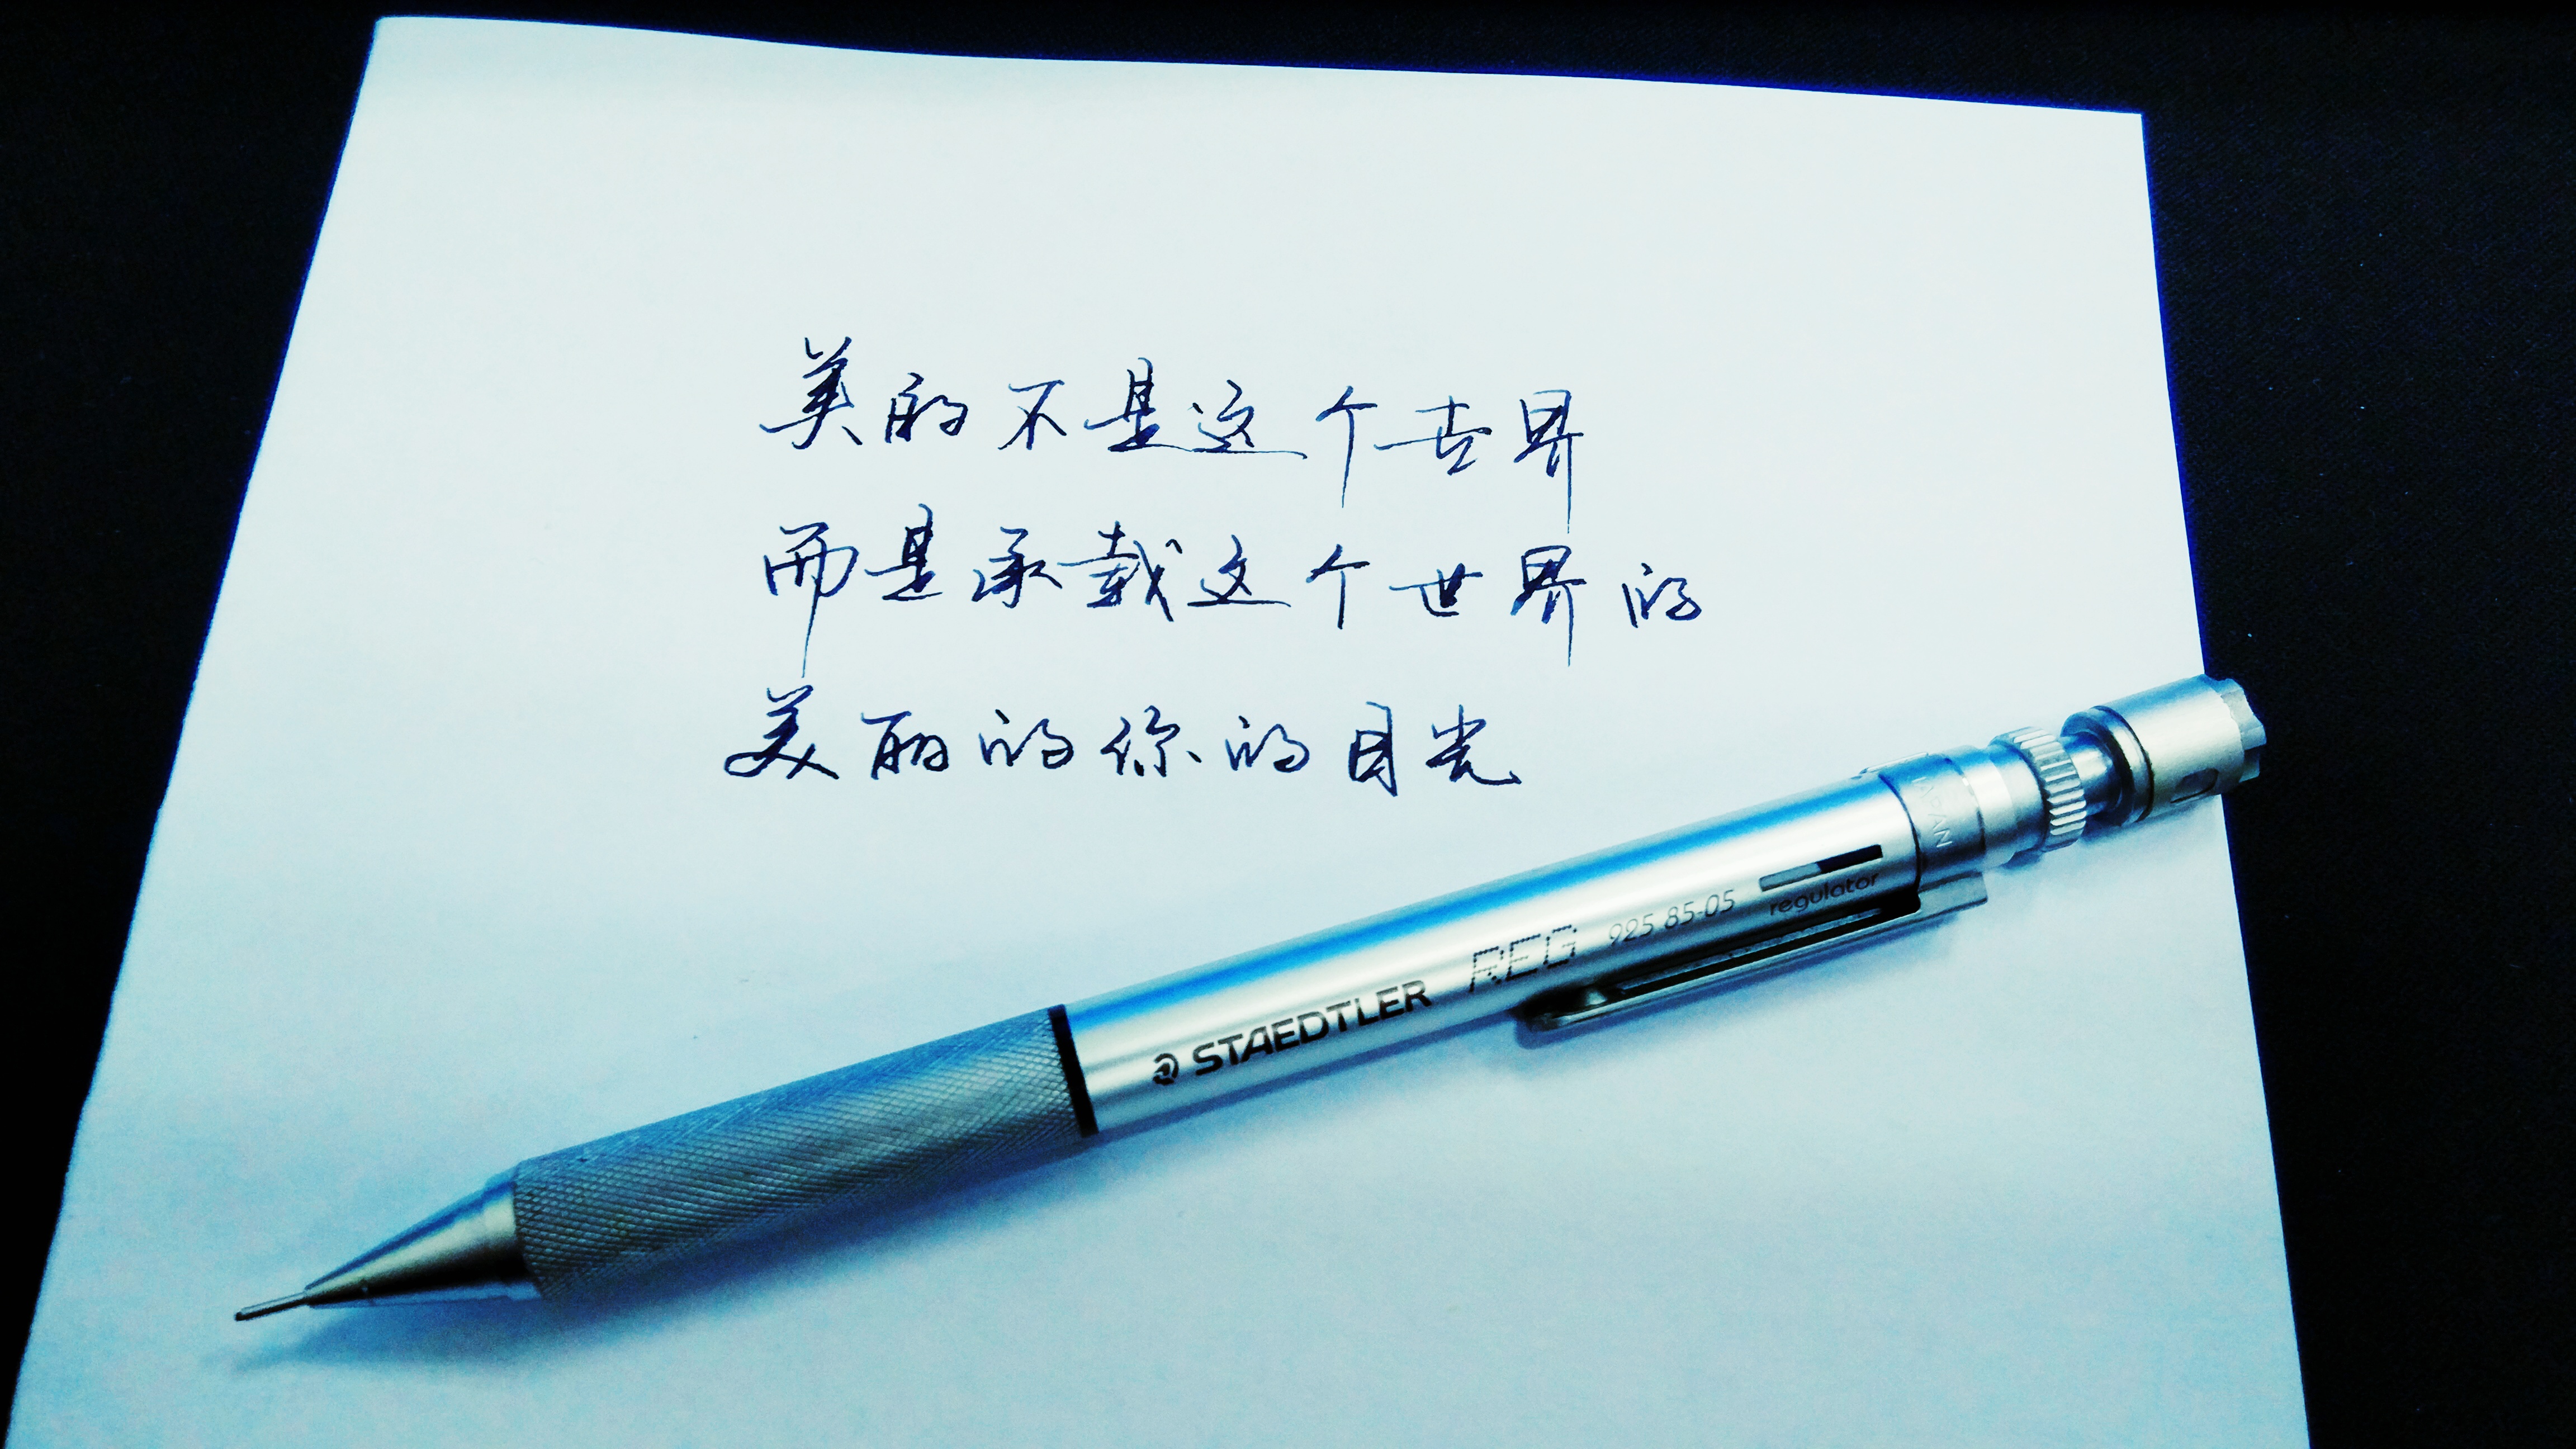 美的不是这个世界
而是承载这个世界的
美丽的你的目光
STAEDTLER REG 925 85-05 regulator
JAPAN